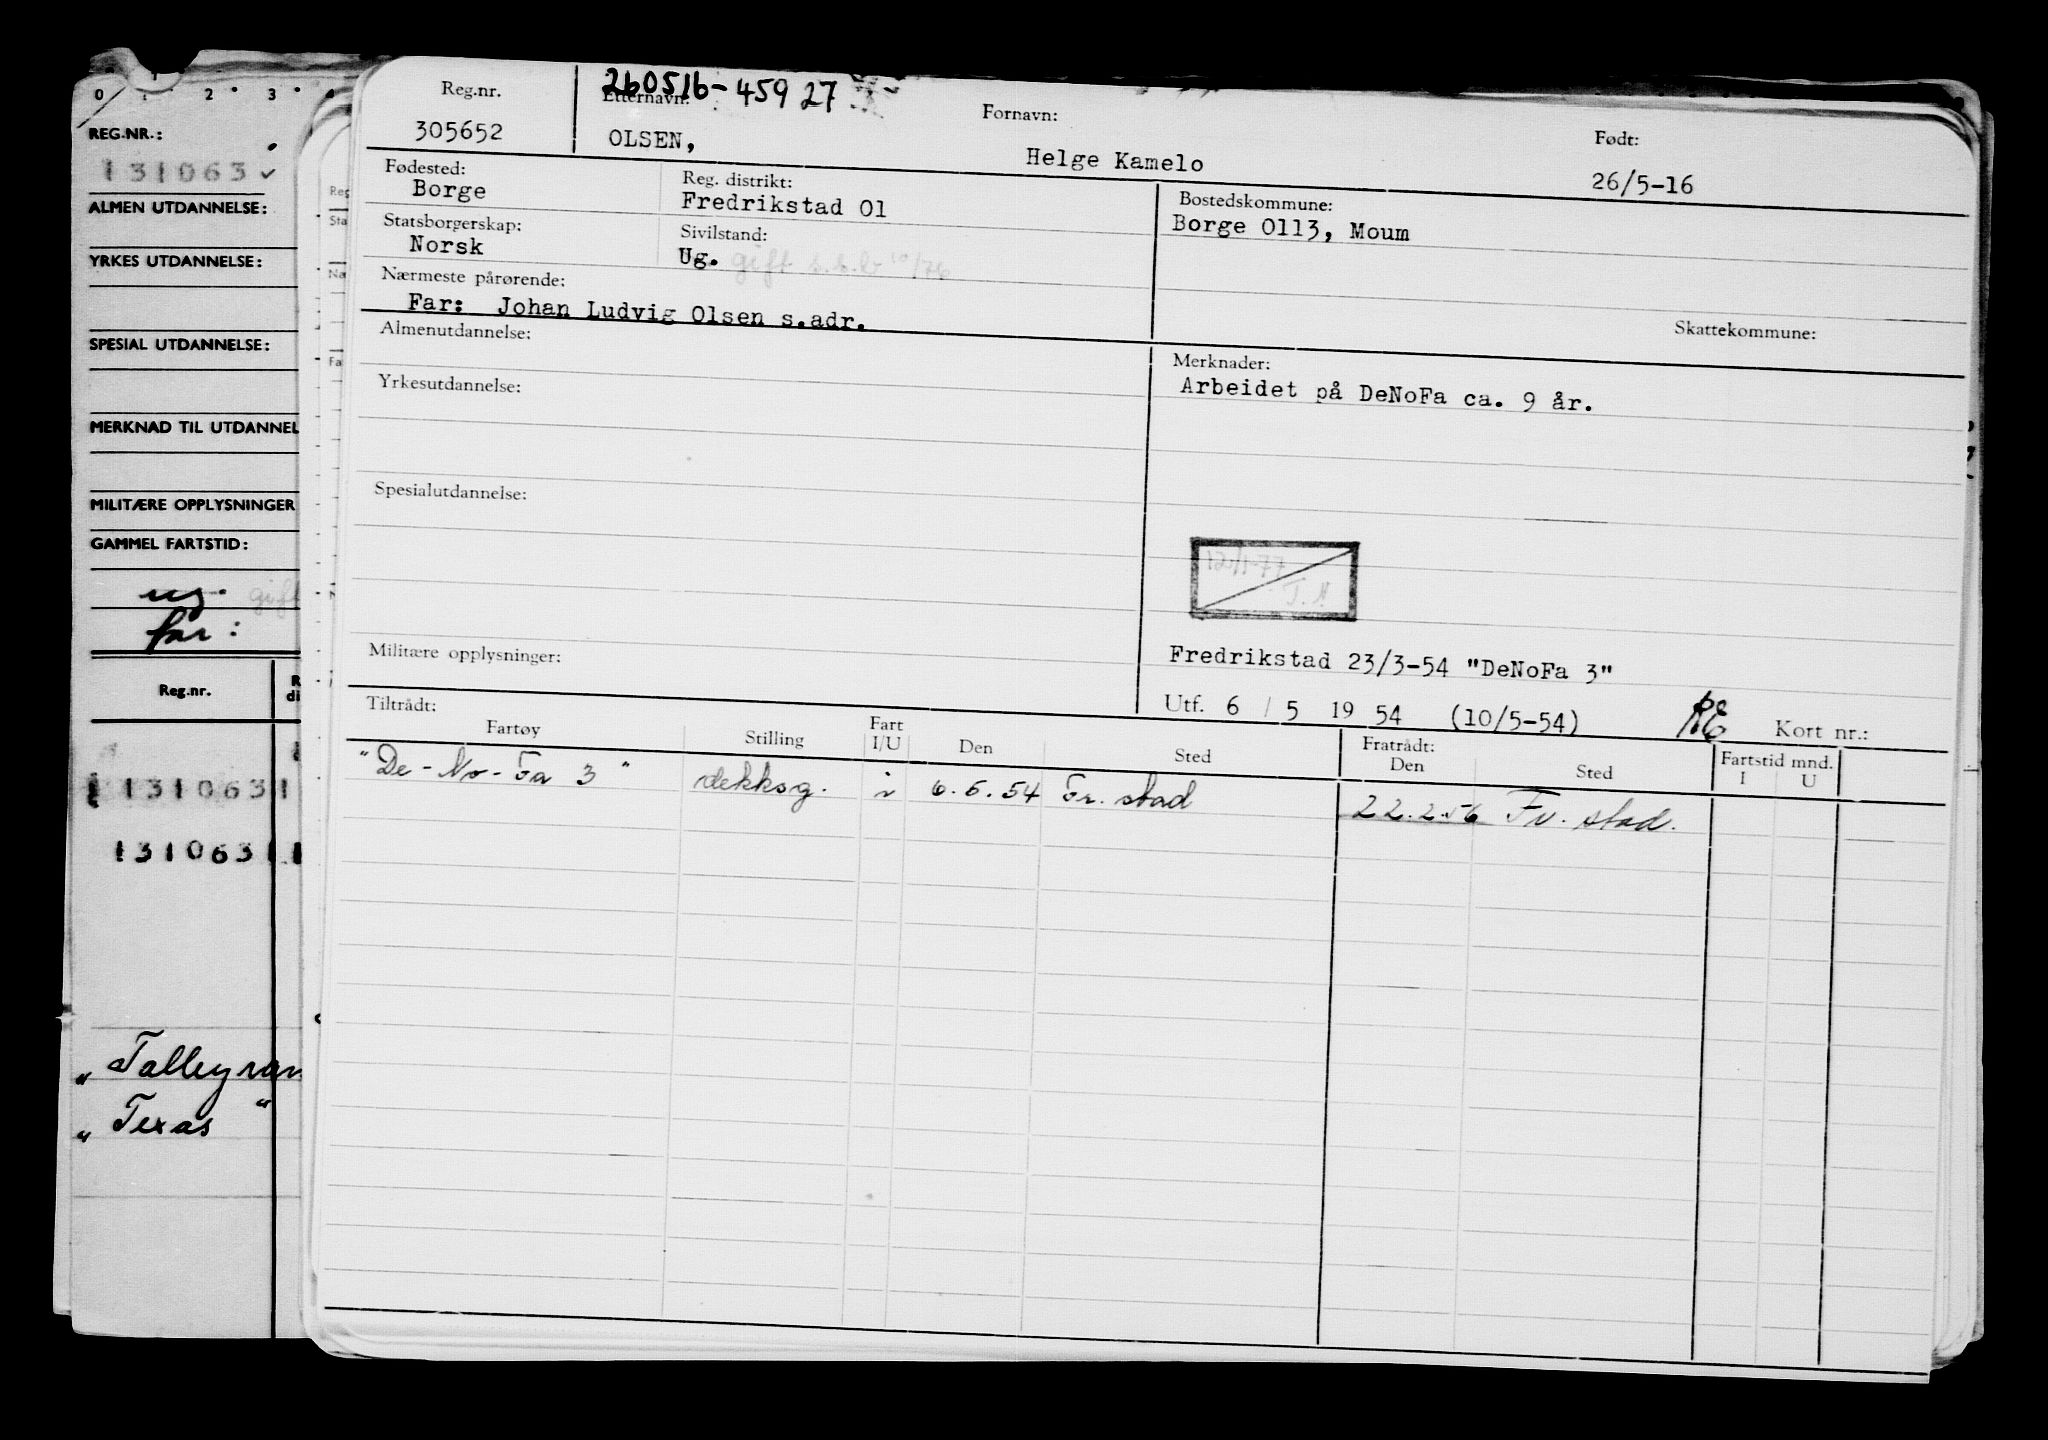 0 1 2 3 4
REG.NR.:
131063 ✓
ALMEN UTDANNELSE:
YRKES UTDANNELSE:
SPESIAL UTDANNELSE:
MERKNAD TIL UTDANNEL
MILITÆRE OPPLYSNINGER
GAMMEL FARTSTID:
ug. gift
far:
Reg.nr.
131063 1
131063 1
"Talleyran
"Texas"
260516-459 27
Reg.nr. Etternavn: Fornavn: Født:
305652 OLSEN, Helge Kamelo 26/5-16
Fødested: Reg. distrikt: Bostedskommune:
Borge Fredrikstad 01 Borge 0113, Moum
Statsborgerskap: Sivilstand:
Norsk Ug. gift
Nærmeste pårørende:
Far: Johan Ludvig Olsen s.adr.
Skattekommune:
Almenutdannelse: Merknader:
Arbeidet på DeNoFa ca. 9 år.
Yrkesutdannelse:
Spesialutdannelse:
12/1-77
Militære opplysninger:
Fredrikstad 23/3-54 "DeNoFa 3"
Utf. 6 / 5 19 54 (10/5-54) Kort nr.:
Tiltrådt: Fratrådt: Fartstid mnd.
Fartøy Stilling Fart I/U Den Sted Den Sted I U
"De-No-Fa 3" dekksg. i 6.5.54 Fr.stad 22.2.56 Fr.stad.